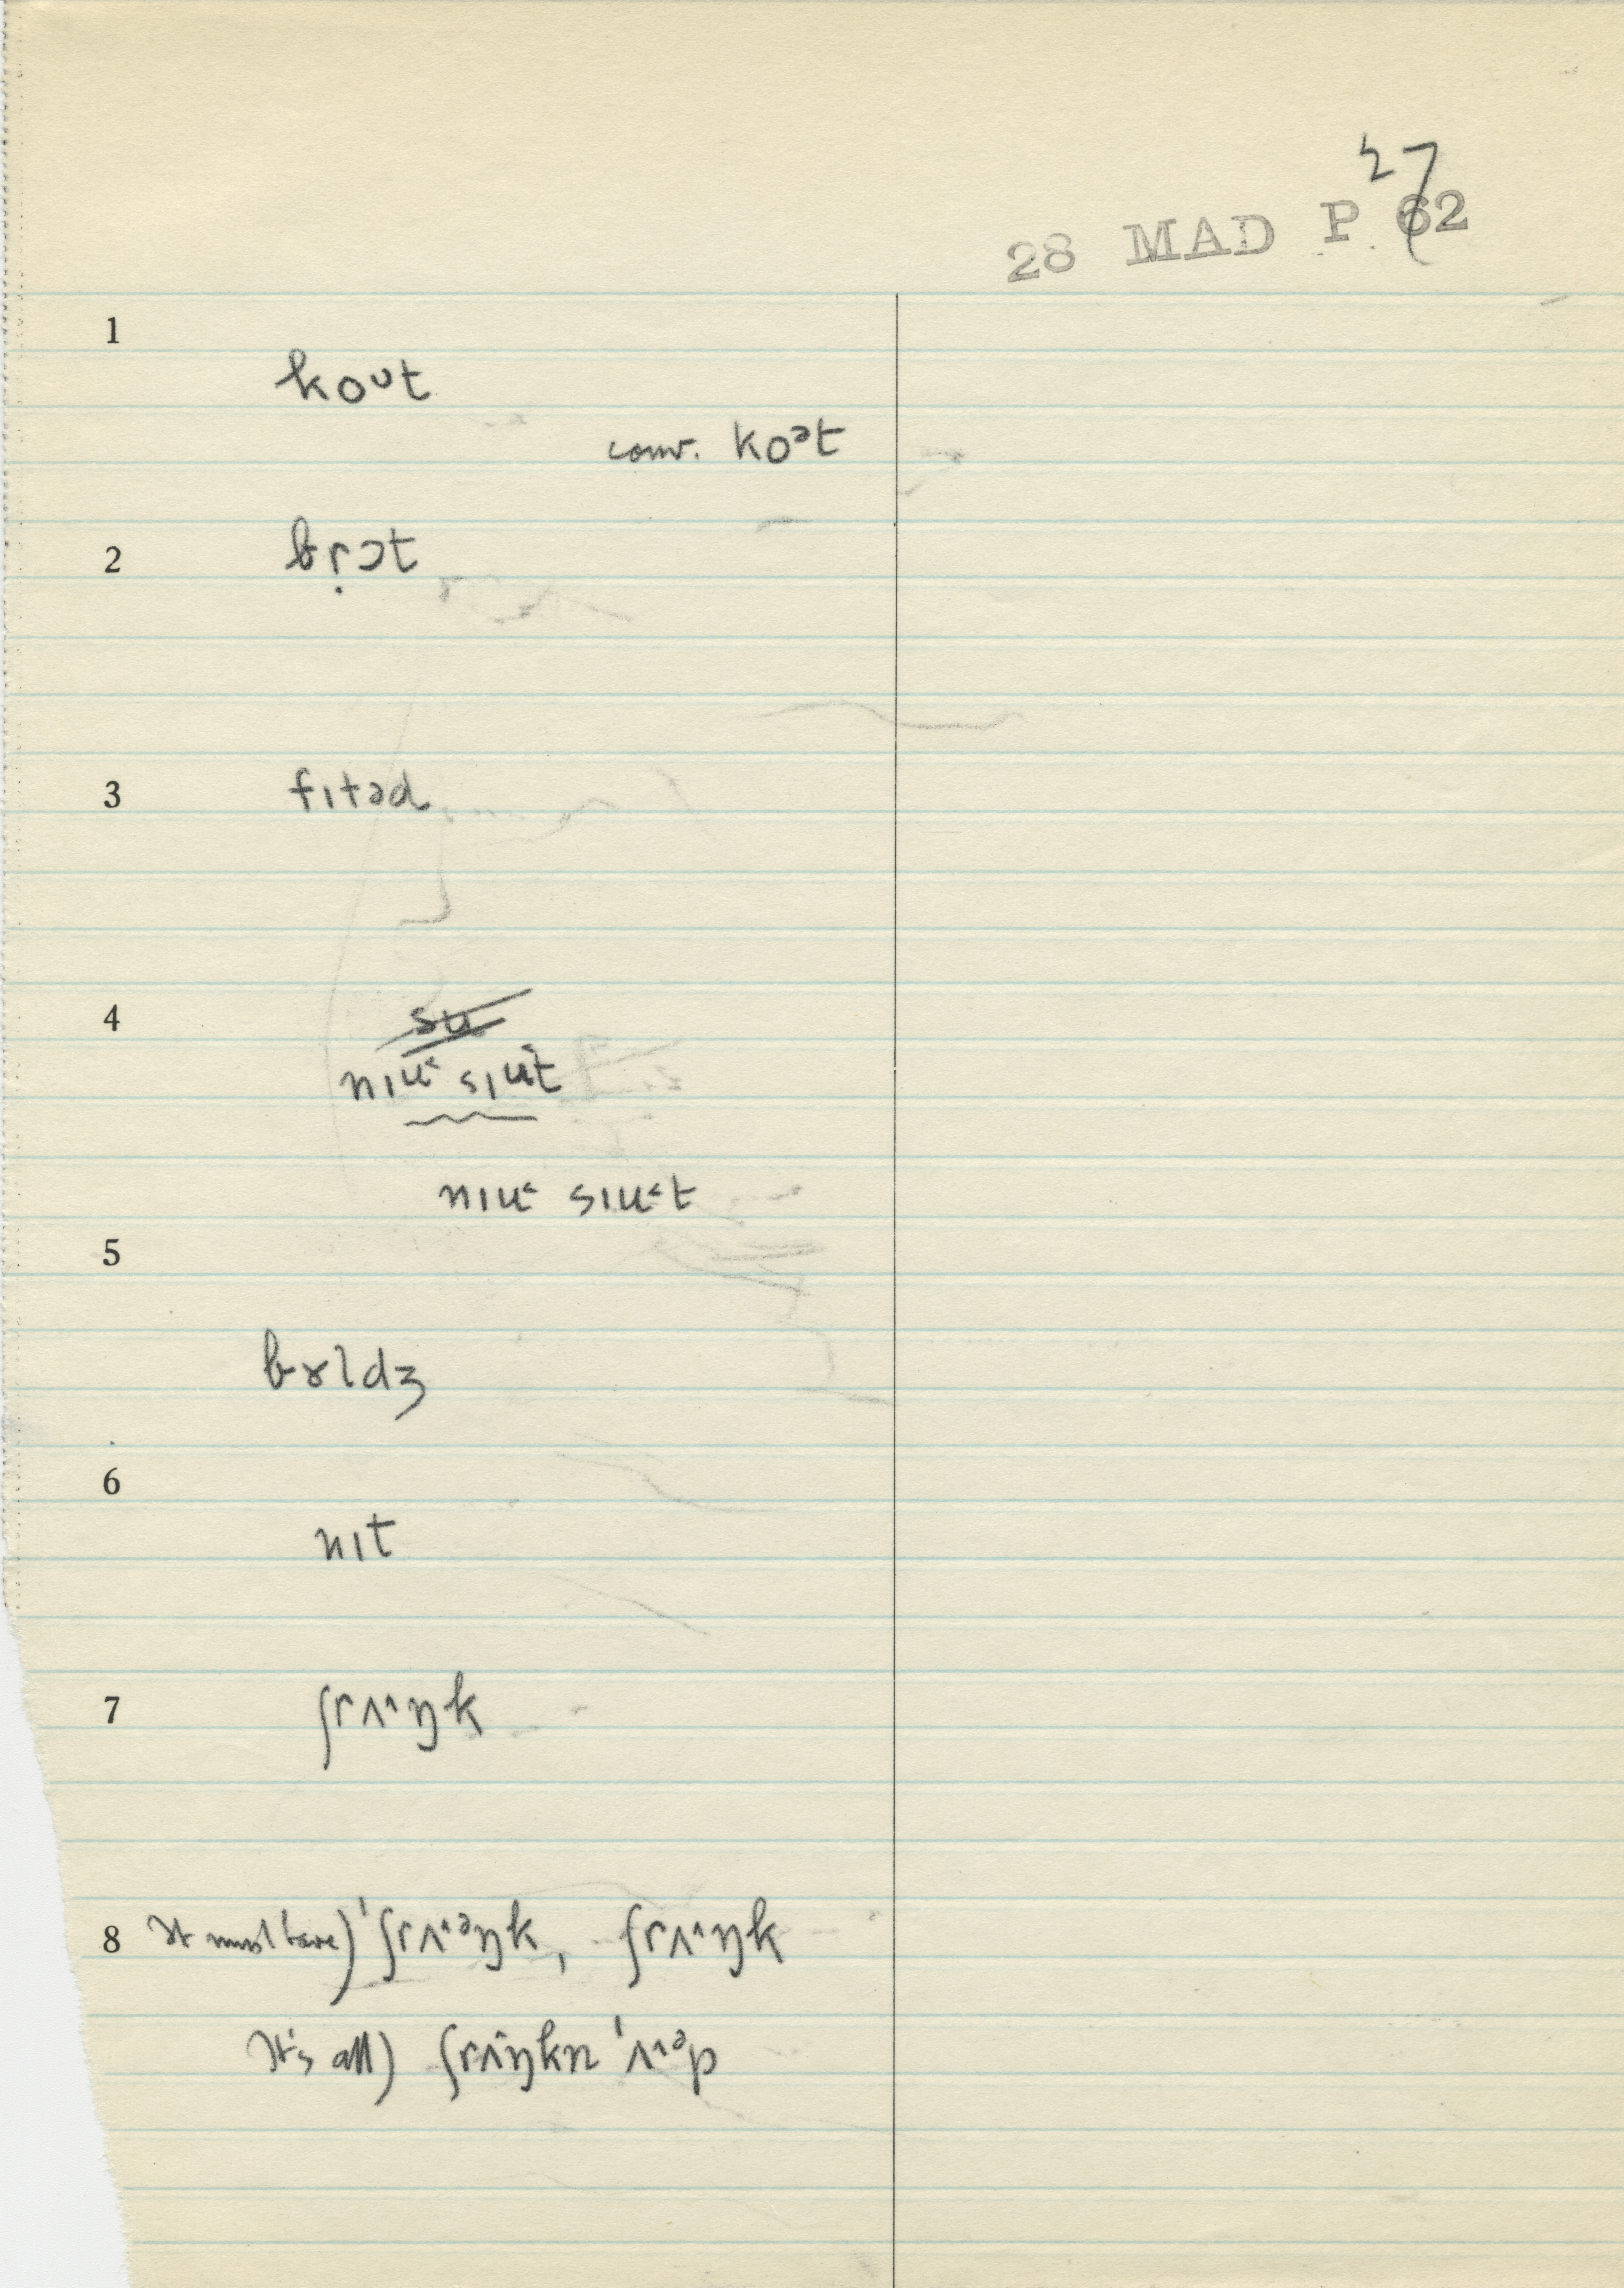 27
28 MAD P 62
1
koᴜt
conv. koᵊt
2
br̩ɔt
3
fɪtəd
4
su
nɪu˂ sɪu˂t
nɪu˂ sɪu˂t
5
bɤldʒ
6
nɪt
7
ʃrʌ˄ŋk
8 It must have) ˈʃrʌ˄ᵊŋk, ʃrʌ˄ŋk
It's all) ʃrʌ˄ŋkn ˈʌ˄ᵊp